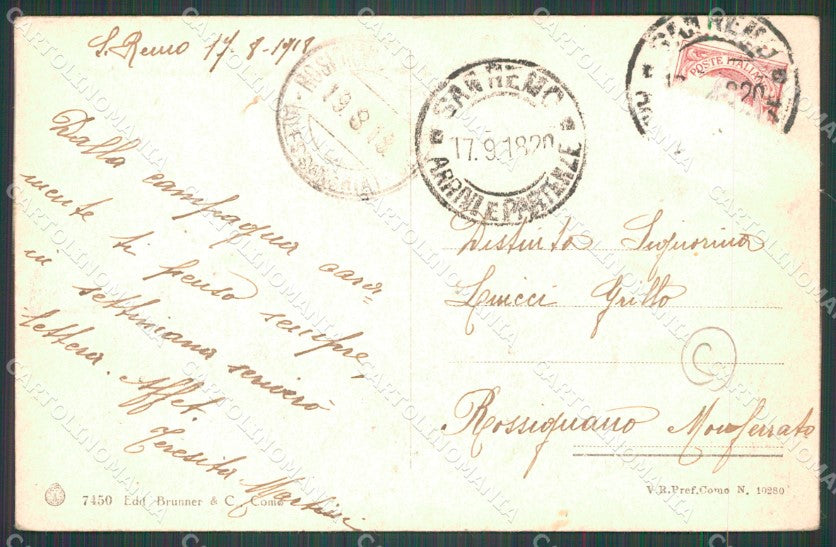 S. Remo 17-8-1918
Dalla campagna
mente ti penso sempre,
in settimana scriverò
lettera. Affet.
Teresita Martini
ROSIGNANO
19.8.18
(ALESSANDRIA)
SAN REMO
17.9.18 20
ARRIVI E PARTENZE
SAN REMO
POSTE ITALIA
Distinta Signorina
Grillo
Rossignano Monferrato
C
7450 Edd Brunner & C Como
V.R.Pref.Como N. 10280
CARTOLINOMANIA